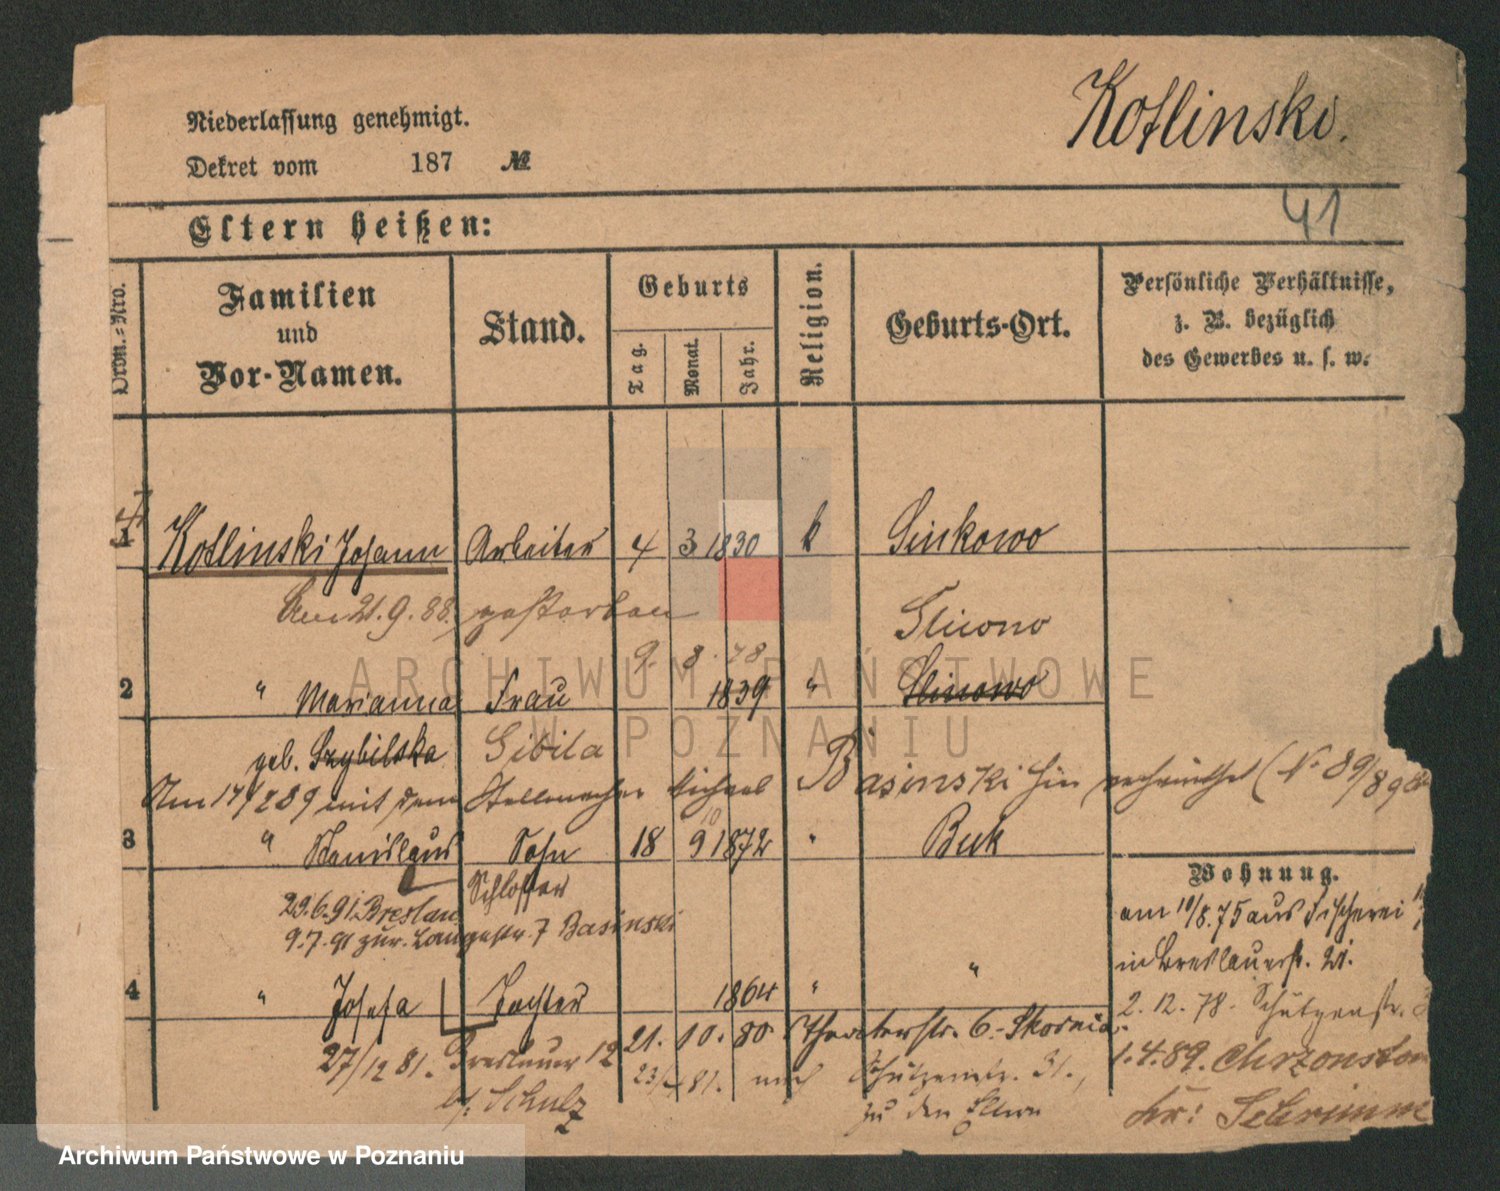 Kotlinski.
Niederlassung genehmigt.
Dekret vom 187 №
41
Eltern heißen:
Ordn.-Nro.
Familien und Vor-Namen.
Stand.
Geburts
Tag.
Monat.
Jahr.
Religion.
Geburts-Ort.
Persönliche Verhältnisse,
z. B. bezüglich
des Gewerbes u. s. w.
1 Kotlinski Johann Arbeiter 4 3 1830 k Sinkowo
Am 21.9.88 gestorben
Slicono
9. 8. 78
2 " Marianna Frau 1839 " Slinowo
geb. Szybilska Sibila
Am 17/ 89 mit dem Stellmacher Michael Basinski hier verheirathet (No 89/89
3 " Stanislaus Sohn 18 9 10 1872 " Buk
Schlosser
29.6.91 Breslau
9.7.91 zur. Langestr. 7 Basinski
Wohnung.
am 10/8.75 aus Fischerei
in Breslauerstr. 21.
4 " Josefa Tochter 1864 " "
2.12.78. Schützenstr.
21. 10. 80 Theaterstr. 6. Skornia
27/12 81. Breslauer 12
b/ Schulz
23/ 81. nach Schützenstr. 31.,
zu den Eltern
1.4.89. Chrzonstow
Kr: Schrimm
ARCHIWUM PAŃSTWOWE
W POZNANIU
Archiwum Państwowe w Poznaniu